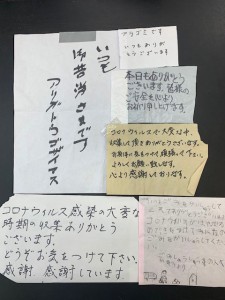 いつも
御苦労さまです
アリガトウゴザイマス
プラゴミです
いつもありが
とうございます
本日もありがとう
ございます。皆様の
ご安全を心より
お祈り申し上げます。
コロナウイルスで大変な中、
収集して頂きありがとうございます。
お身体に気をつけて頑張って下さい。
よろしくお願い致します。
心より感謝しております。
コロナウィルス感染の大変な
時期の収集ありがとう
ございます。
どうぞお気をつけて下さい。
感謝 感謝しています